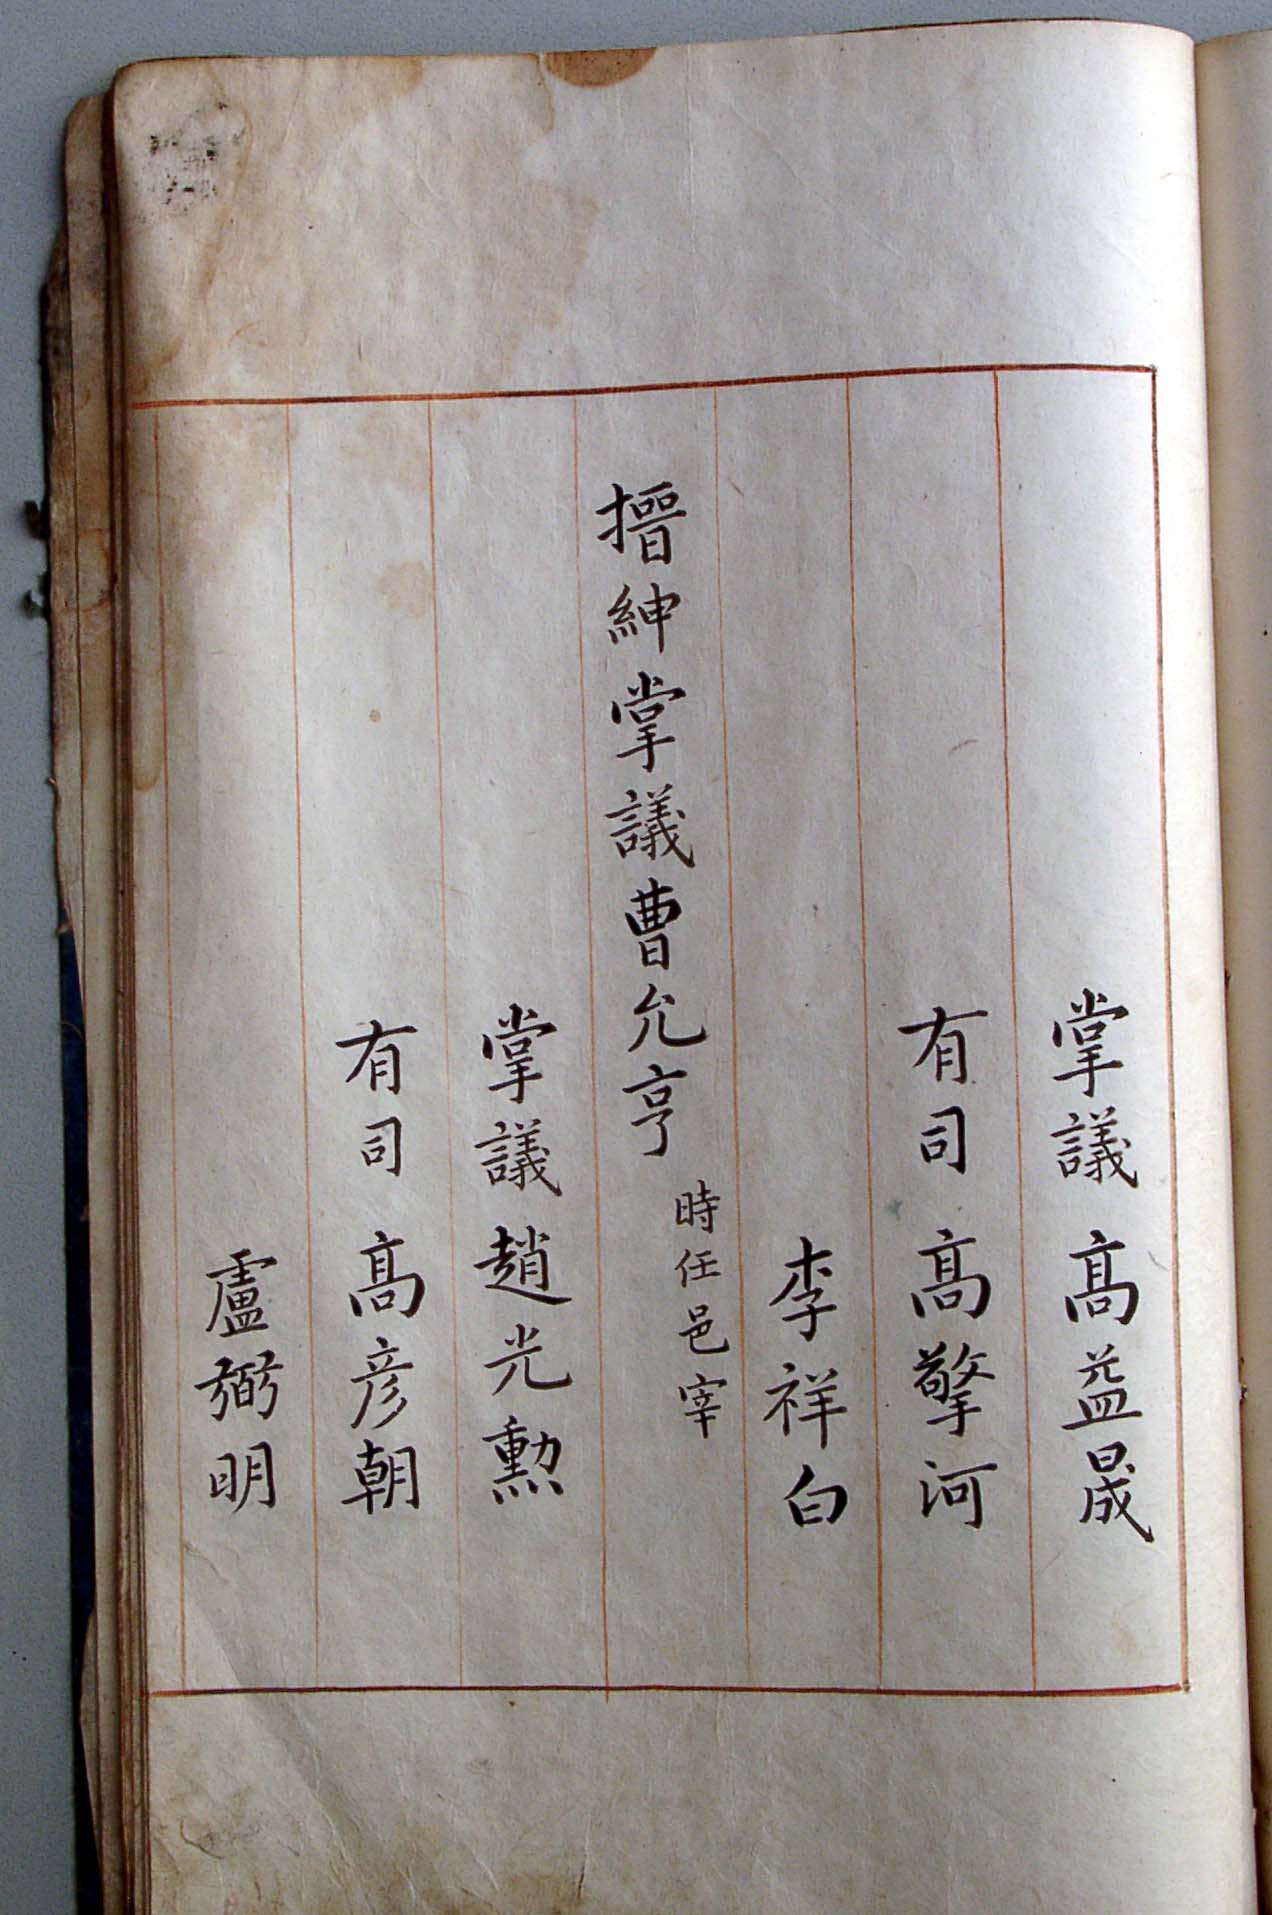 掌議 高益晟
有司 高擎河
李祥白
搢紳掌議曹允亨 時任邑宰
掌議趙光勳
有司 高彦朝
盧弼明